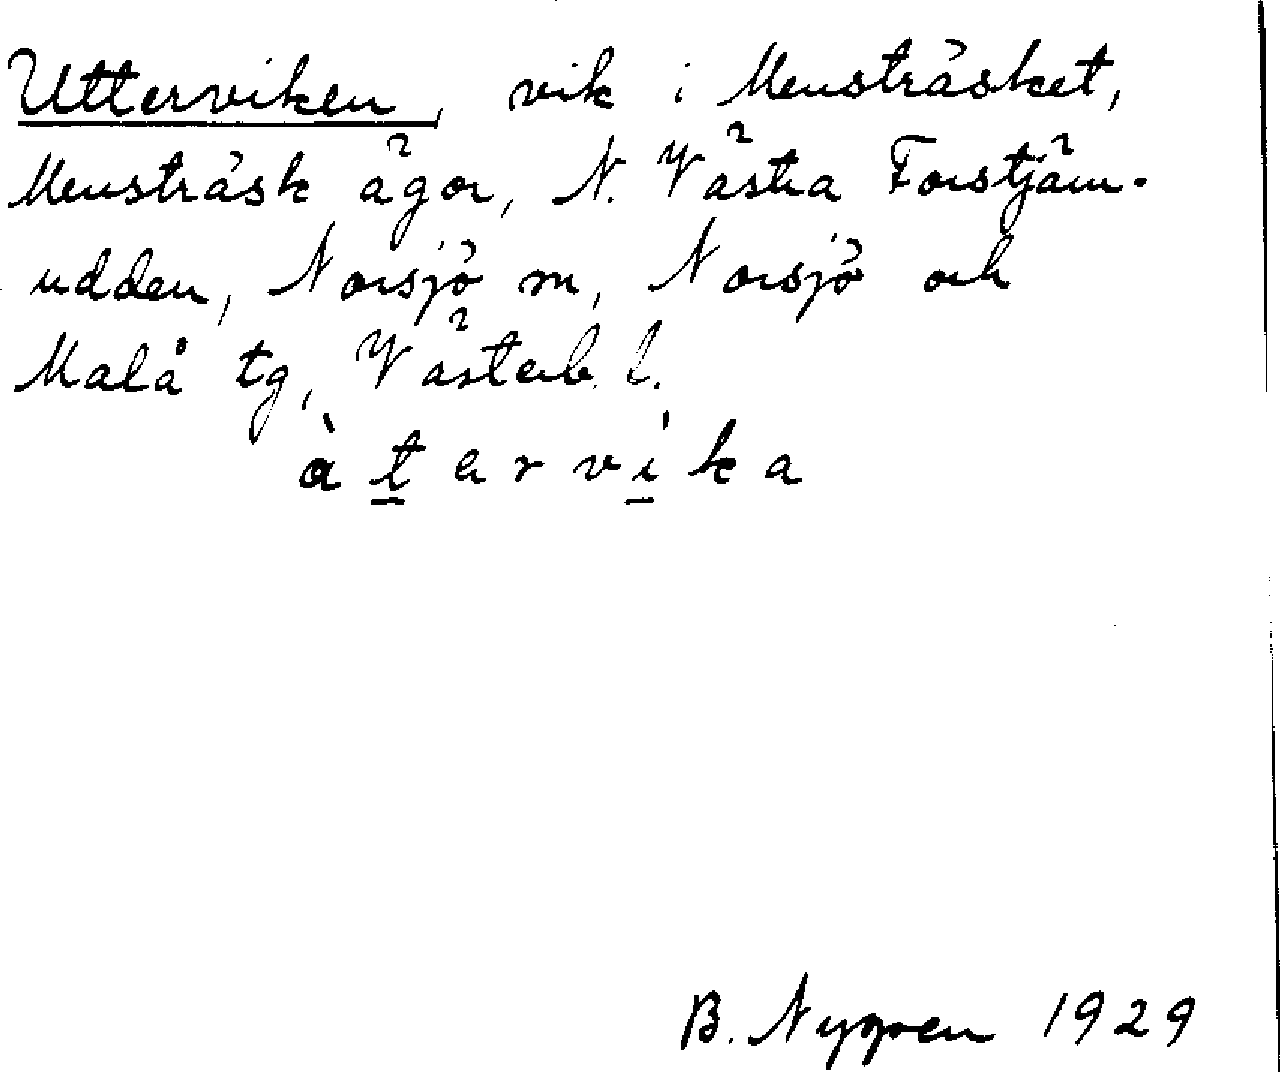 Utterviken, vik i Mensträsket,
Mensträsk ägor, N. Västra Forstjärn-
udden, Norsjö sn, Norsjö och
Malå tg, Västerb. l.
àt̲erví̲ka
B. Nygren 1929